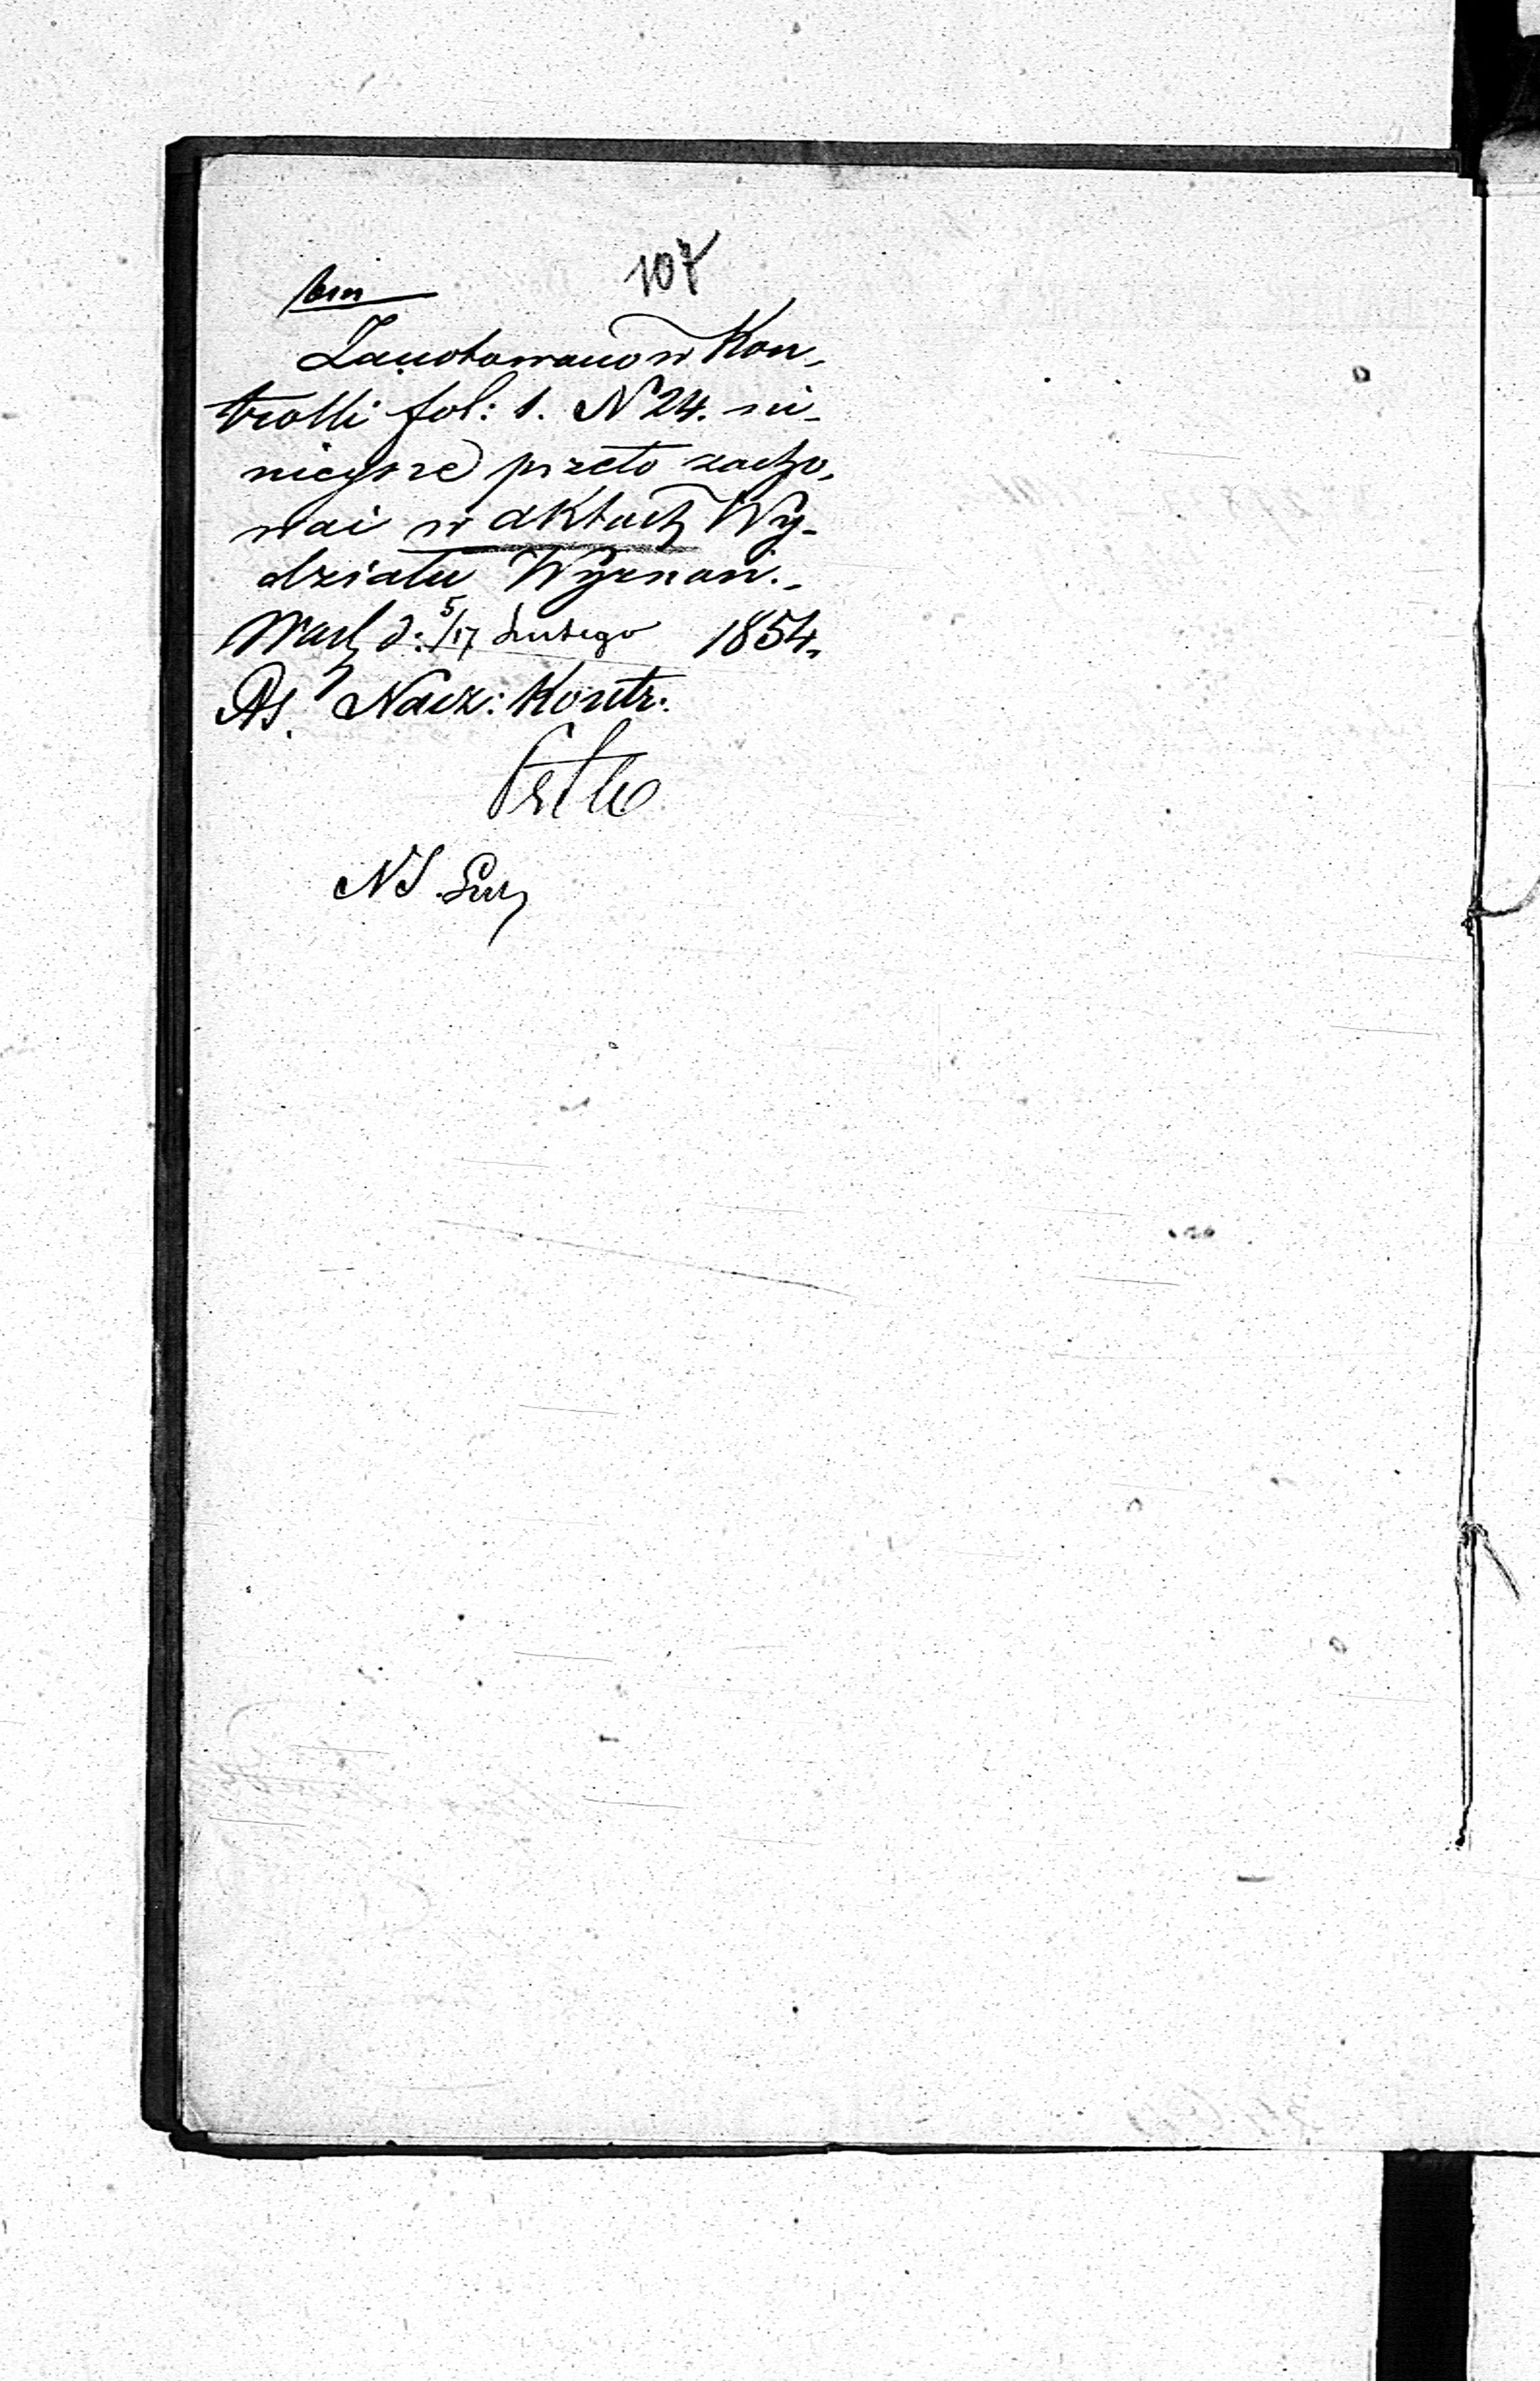 107
Zanotowano w Kon-
trolli fol: 1. N 24. ni-
nieysze przeto zacho-
wać w aktach Wy-
działu Wyznań.
Warsz d: 5/17 Lutego 1854.
As. Nacz: Kontr:
NS